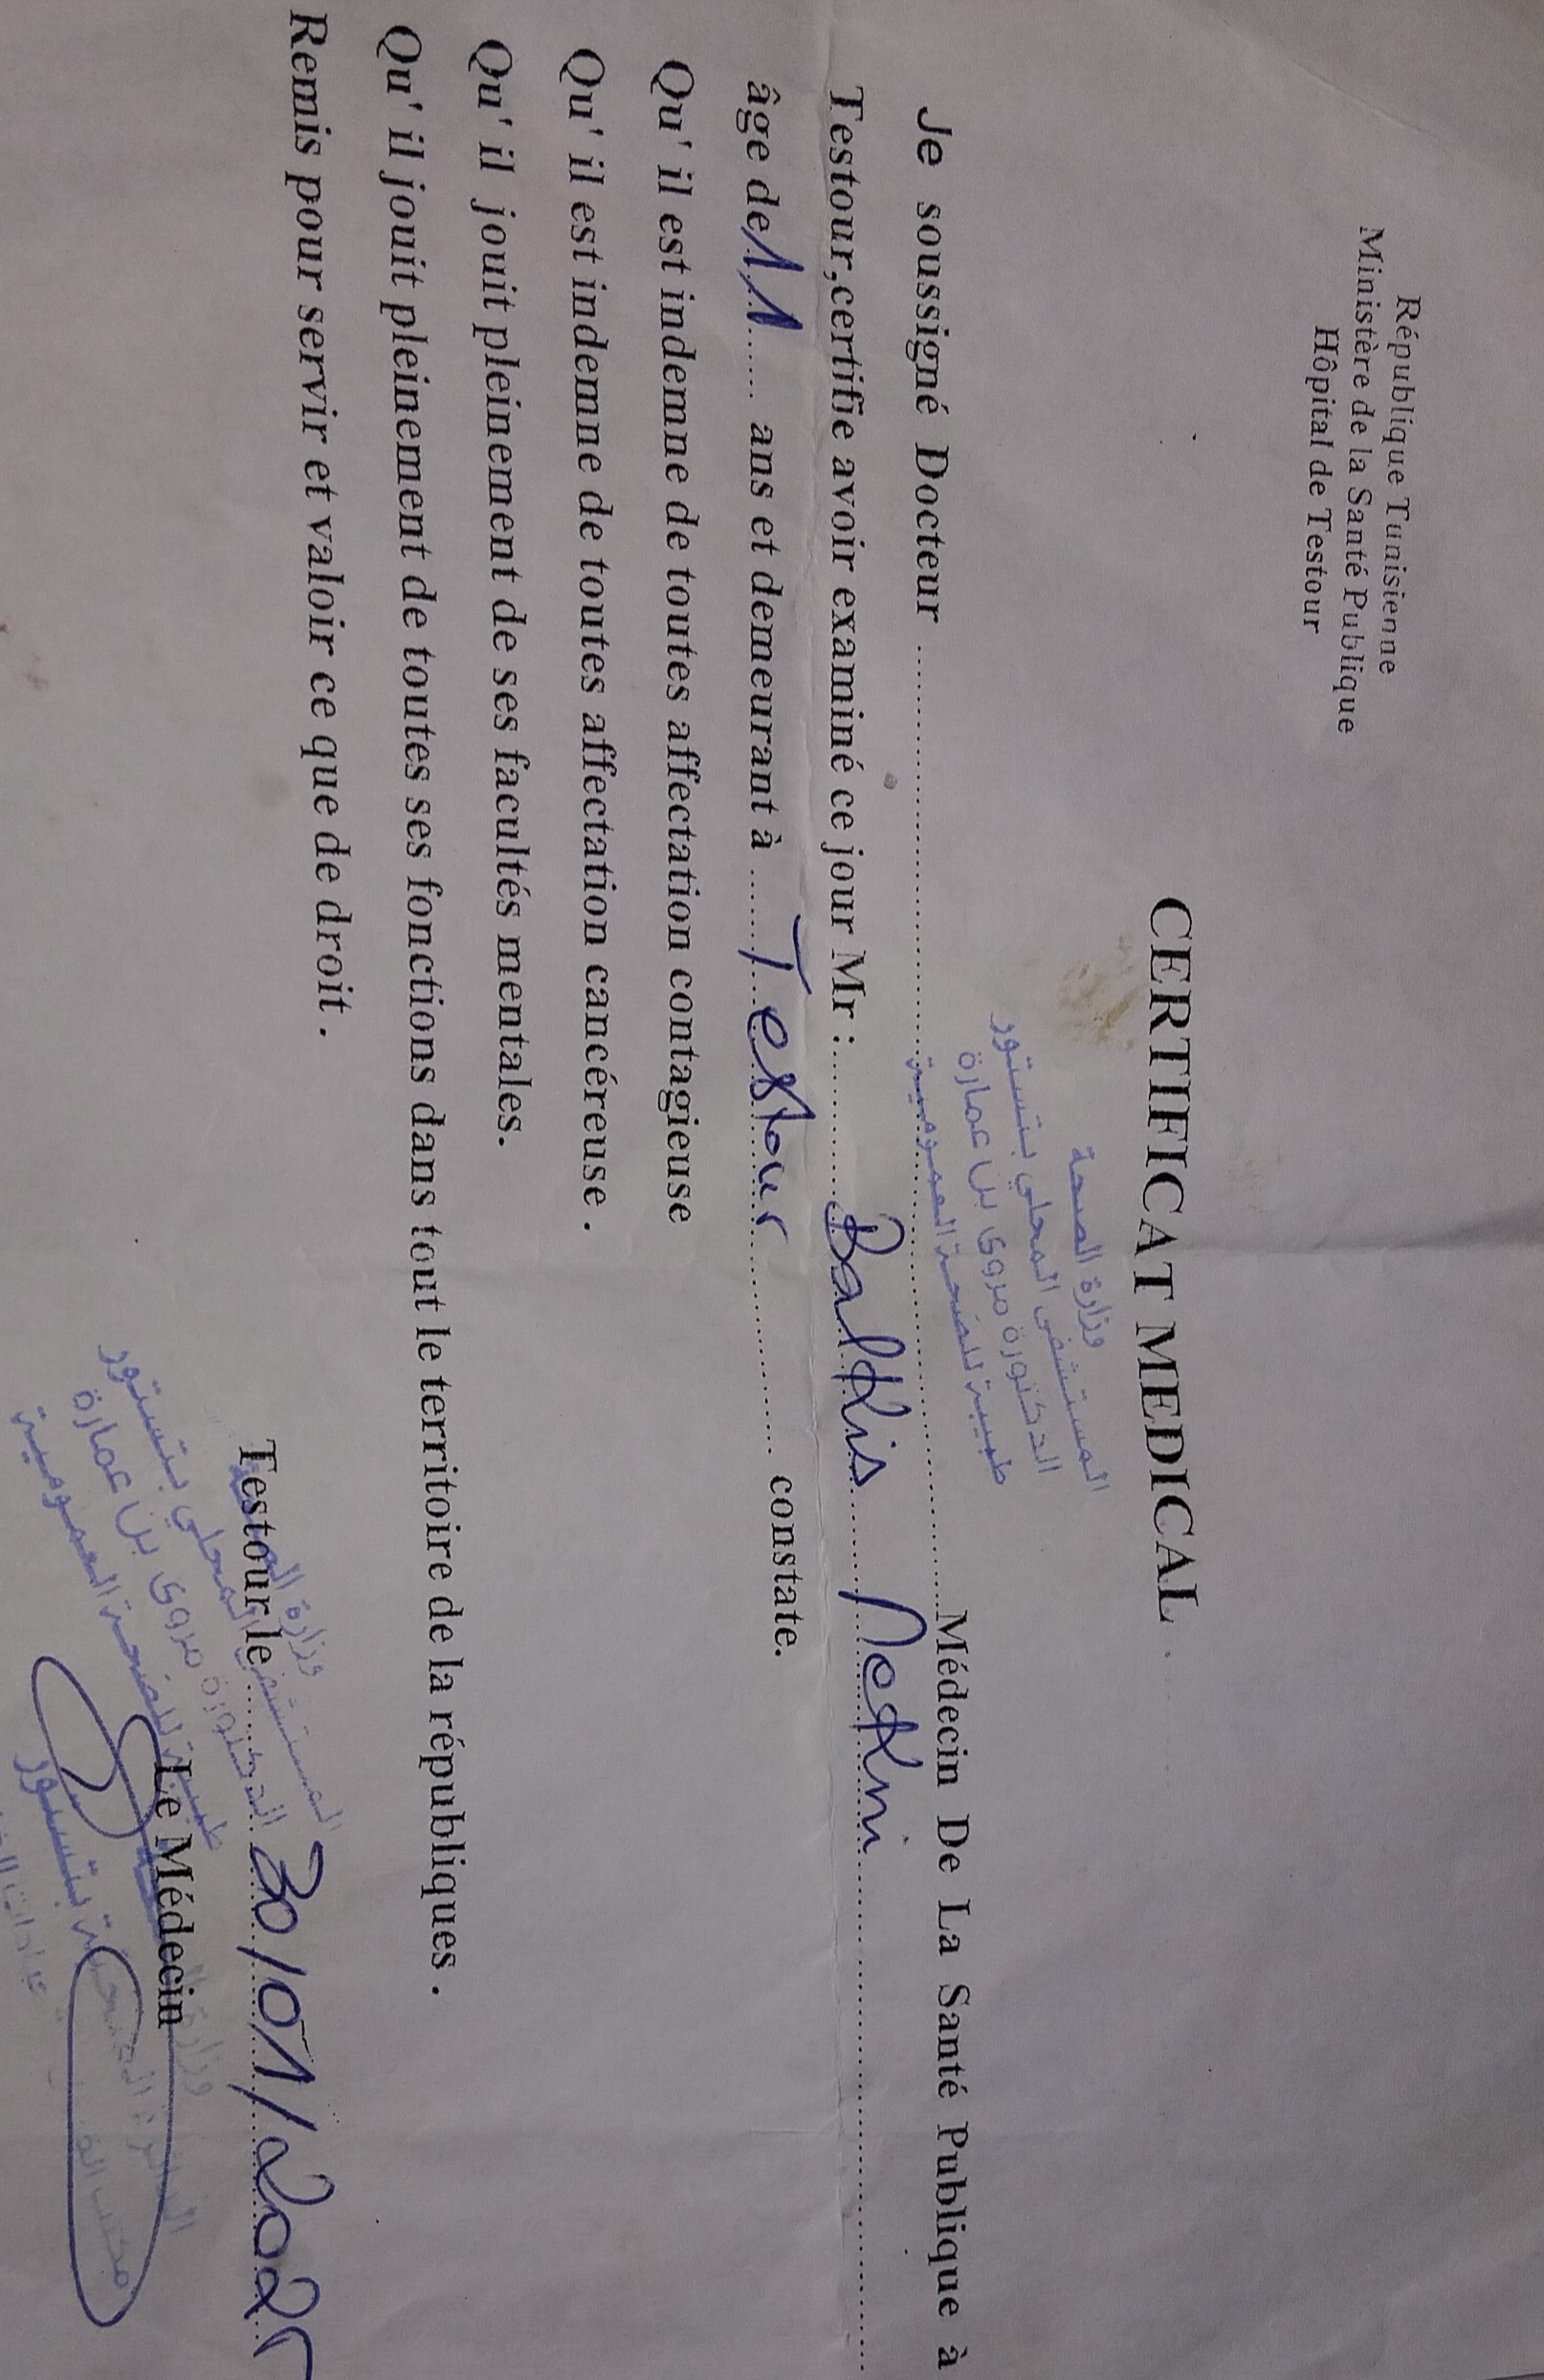 République Tunisienne
Ministère de la Santé Publique
Hôpital de Testour
CERTIFICAT MEDICAL
وزارة الصحة
المستشفى المحلي بتستور
الدكتورة مروى بن عمارة
طبيبة للصحة العمومية
Je soussigné Docteur ........ Médecin De La Santé Publique à
Testour,certifie avoir examiné ce jour Mr : Balkis Nekni
âge de 11 ans et demeurant à Testour constate.
Qu' il est indemne de toutes affectation contagieuse
Qu' il est indemne de toutes affectation cancéreuse .
Qu' il jouit pleinement de ses facultés mentales.
Qu' il jouit pleinement de toutes ses fonctions dans tout le territoire de la républiques .
Remis pour servir et valoir ce que de droit .
Testour le 30/01/2025
وزارة الصحة
المستشفى المحلي بتستور
الدكتورة مروى بن عمارة
طبيبة للصحة العمومية
Le Médecin
بتستور